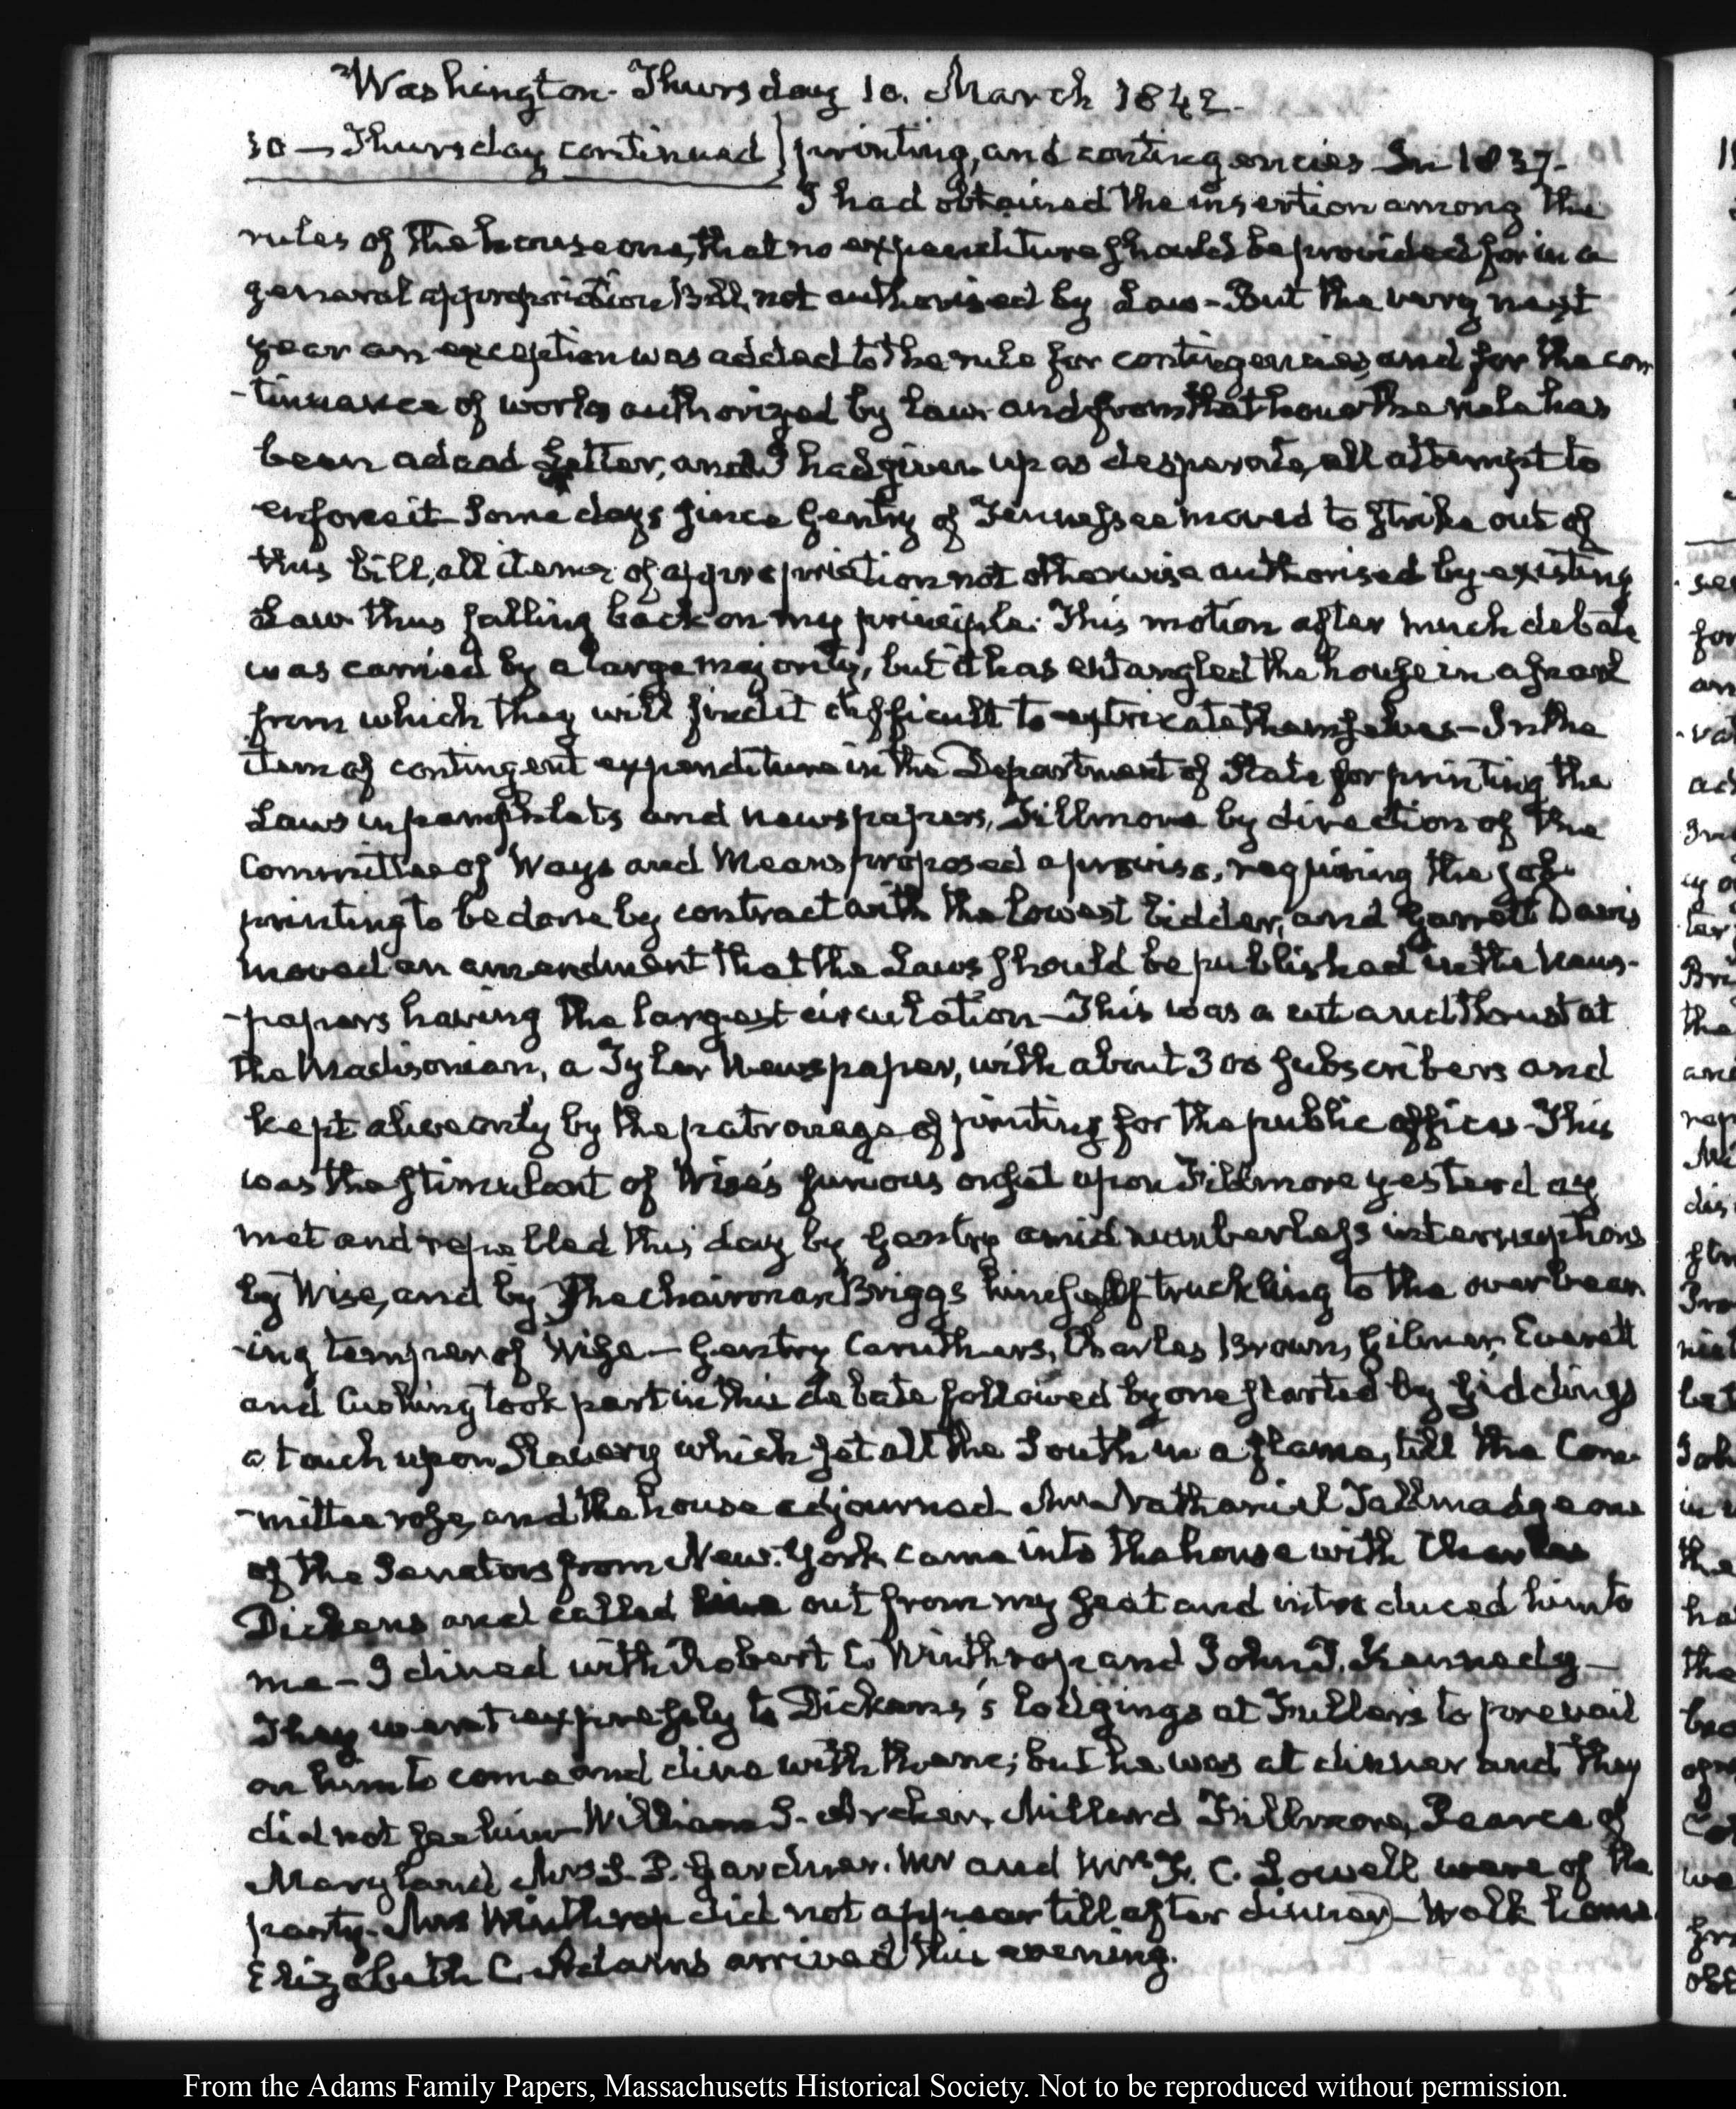 Washington. Thursday 10. March 1842.
10 — Thursday continued } printing, and contingencies In 1837.
I had obtained the insertion among the
rules of the house one, that no expenditure should be provided for in a
general appropriation Bill, not authorised by Law - But the very next
year an exception was added to the rule for contingencies, and for the con
-tinuance of works authorized by law and from that hour the rule has
been a dead Letter, and I had given up as desperate, all attempt to
enforce it Some days since Gentry of Tennessee moved to strike out of
this bill, all items of appropriation not otherwise authorised by existing
Law thus falling back on my principle. This motion after much debate
was carried by a large majority, but it has entangled the house in a snarl
from which they will find it difficult to extricate themselves - In the
item of contingent expenditure in the Department of State for printing the
Laws in pamphlets and newspapers, Fillmore by direction of the
Committee of Ways and Means proposed a proviso, requiring the job
printing to be done by contract with the lowest bidder, and Garrett Davis
moved an amendment that the Laws should be published in the News-
-papers having the largest circulation - This was a cut and thrust at
the Madisonian, a Tyler Newspaper, with about 300 subscribers and
kept alive only by the patronage of printing for the public offices - This
was the stimulant of Wise's furious onset upon Fillmore yesterday
met and repelled this day by Gentry amid numberless interruptions
by Wise, and by the chairman Briggs himself truckling to the overbear
-ing temper of Wise - Gentry Caruthers, Charles Brown, Gilmer, Everett
and Cushing took part in this debate followed by one started by Giddings
a touch upon Slavery which set all the South in a flame, till the Com-
-mittee rose, and the house adjourned Mr Nathaniel Tallmadge one
of the Senators from New-York came into the house with Charles
Dickens and called out from my seat and introduced him to
me - I dined with Robert C. Winthrop and John P. Kennedy -
They went expressly to Dickens's lodgings at Fuller's to prevail
on him to come and dine with them; but he was at dinner and they
did not see him William S. Archer, Millard Fillmore, Pearce of
Maryland, Mrs L. P. Gardner. Mr and Mrs F. C. Lowell were of the
party. Mrs Winthrop did not appear till after dinner) - Walk home
Elizabeth C. Adams arrived this evening.
From the Adams Family Papers, Massachusetts Historical Society. Not to be reproduced without permission.